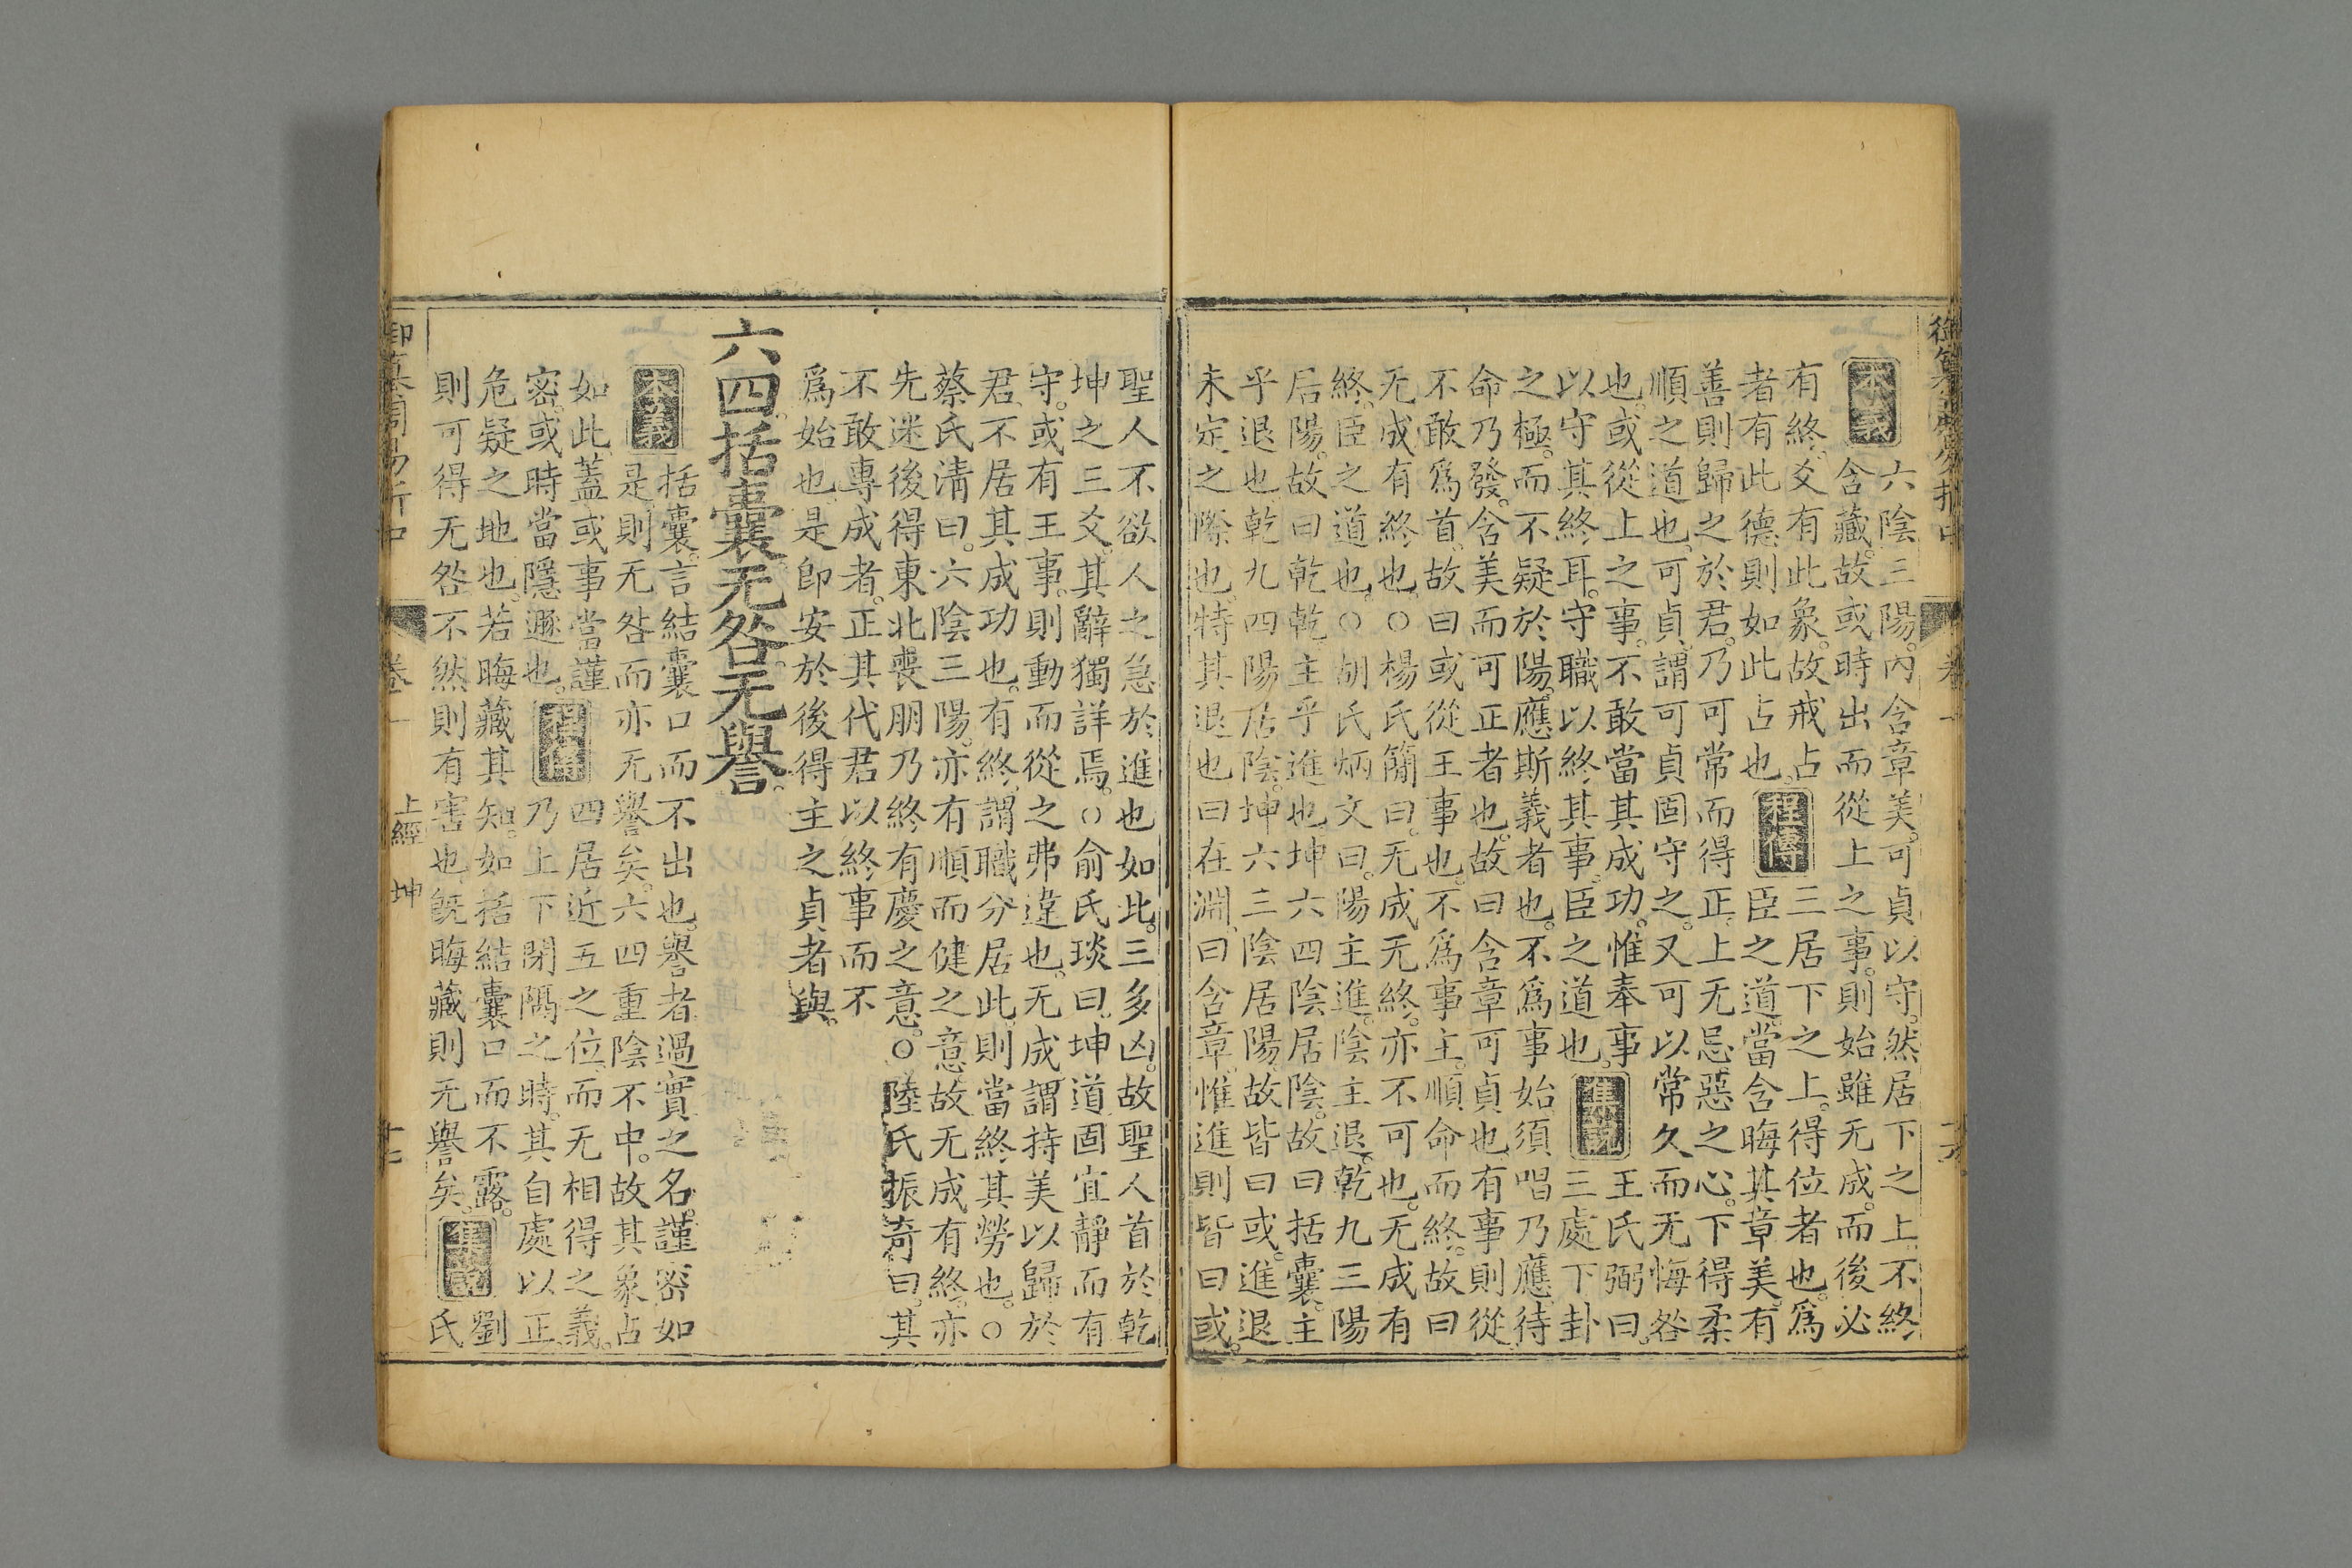 御纂周易折中 卷一 十六
本義 六陰三陽。內含章美。可貞以守。然居下之上。不終
含藏。故或時出而從上之事。則始雖无成。而後必
有終。爻有此象。故戒占
者有此德。則如此占也。程傳 三居下之上。得位者也。爲
臣之道。當含晦其章美。有
善則歸之於君。乃可常而得正。上无忌惡之心。下得柔
順之道也。可貞。謂可貞固守之。又可以常久而无悔咎
也。或從上之事。不敢當其成功。惟奉事
以守其終耳。守職以終其事。臣之道也。集說 王氏弼曰。
三處下卦
之極。而不疑於陽。應斯義者也。不爲事始。須唱乃應。待
命乃發。含美而可正者也。故曰含章可貞也。有事則從。
不敢爲首。故曰或從王事也。不爲事主。順命而終。故曰
无成有終也。○楊氏簡曰。无成无終。亦不可也。无成有
終。臣之道也。○胡氏炳文曰。陽主進。陰主退。乾九三陽
居陽。故曰乾乾。主乎進也。坤六四陰居陰。故曰括囊。主
乎退也。乾九四陽居陰。坤六三陰居陽。故皆曰或。進退
未定之際也。特其退也曰在淵。曰含章。惟進則皆曰或。
聖人不欲人之急於進也如此。三多凶。故聖人首於乾
坤之三爻。其辭獨詳焉。○俞氏琰曰。坤道固宜靜而有
守。或有王事。則動而從之弗違也。无成謂持美以歸於
君。不居其成功也。有終。謂職分居此。則當終其勞也。○
蔡氏清曰。六陰三陽。亦有順而健之意。故无成有終。亦
先迷後得。東北喪朋。乃終有慶之意。○陸氏振奇曰。其
不敢專成者。正其代君以終事。而不
爲始也。是卽安於後得主之貞者與。
六四。括囊。无咎无譽。
本義 括囊。言結囊口而不出也。譽者過實之名。謹密如
是。則无咎而亦无譽矣。六四重陰不中。故其象占
如此。蓋或事當謹
密。或時當隱遯也。程傳 四居近五之位。而无相得之義。
乃上下閉隔之時。其自處以正。
危疑之地也。若晦藏其知。如括結囊口而不露。
則可得无咎。不然則有害也。旣晦藏則无譽矣。集說 劉
氏
御纂周易折中 卷一 上經 坤 十七